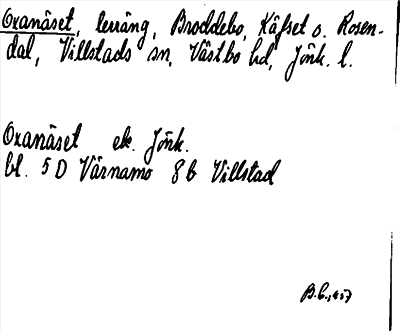 Oxanäset, terräng, Broddebo, Käfset o. Rosen-
dal, Villstads sn, Västbo hd, Jönk. l.
Oxanäset ek. Jönk.
bl. 5 D Värnamo 8 b Villstad